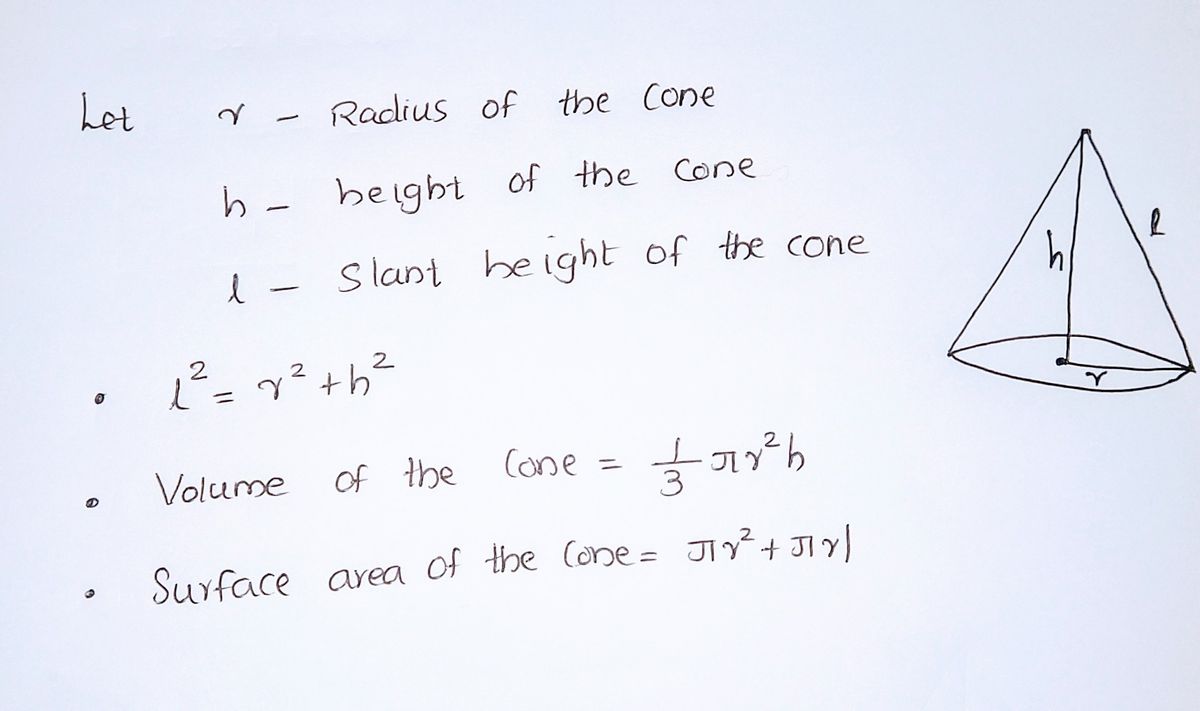 Let r - Radius of the Cone
h - height of the Cone
l - Slant height of the cone
• l² = r² + h²
• Volume of the Cone = 1/3 πr²h
• Surface area of the Cone = πr² + πrl
h
l
r